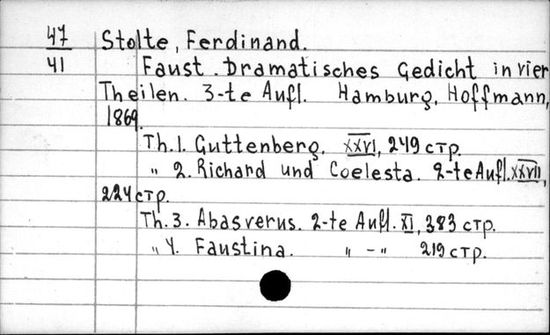 47 Stolte, Ferdinand.
41 Faust. Dramatisches Gedicht in vier
Theilen. 3-te Aufl. Hamburg, Hoffmann,
1869.
Th.1. Guttenberg. XXVI, 249 стр.
" 2. Richard und Coelesta. 2-te Aufl. XXVII,
224 стр.
Th.3. Abasverus. 2-te Aufl. XI, 383 стр.
" 4. Faustina. " - " 219 стр.